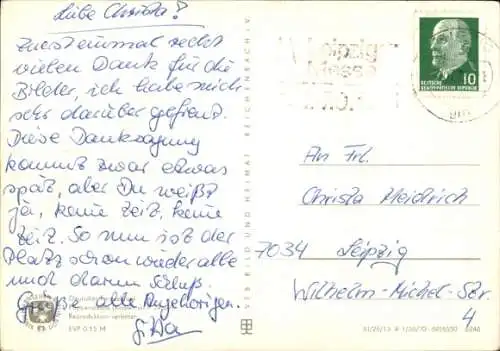 Liebe Christa!
Zuerst einmal recht
vielen Dank für die
Bilder, ich habe mich
sehr darüber gefreut.
Diese Danksagung
kommt zwar etwas
spät, aber Du weißt
ja, keine Zeit, keine
Zeit. So nun ist der
Platz schon wieder alle
und darum Schluß.
Grüße alle Angehörigen.
EVP 0,15 M
VEB BILD UND HEIMAT REICHENBACH i. V.
Leipziger
Messe
10
DEUTSCHE
DEMOKRATISCHE REPUBLIK
An Frl.
Christa Meidrich
7034 Leipzig
Wilhelm-Michel-Str.
4